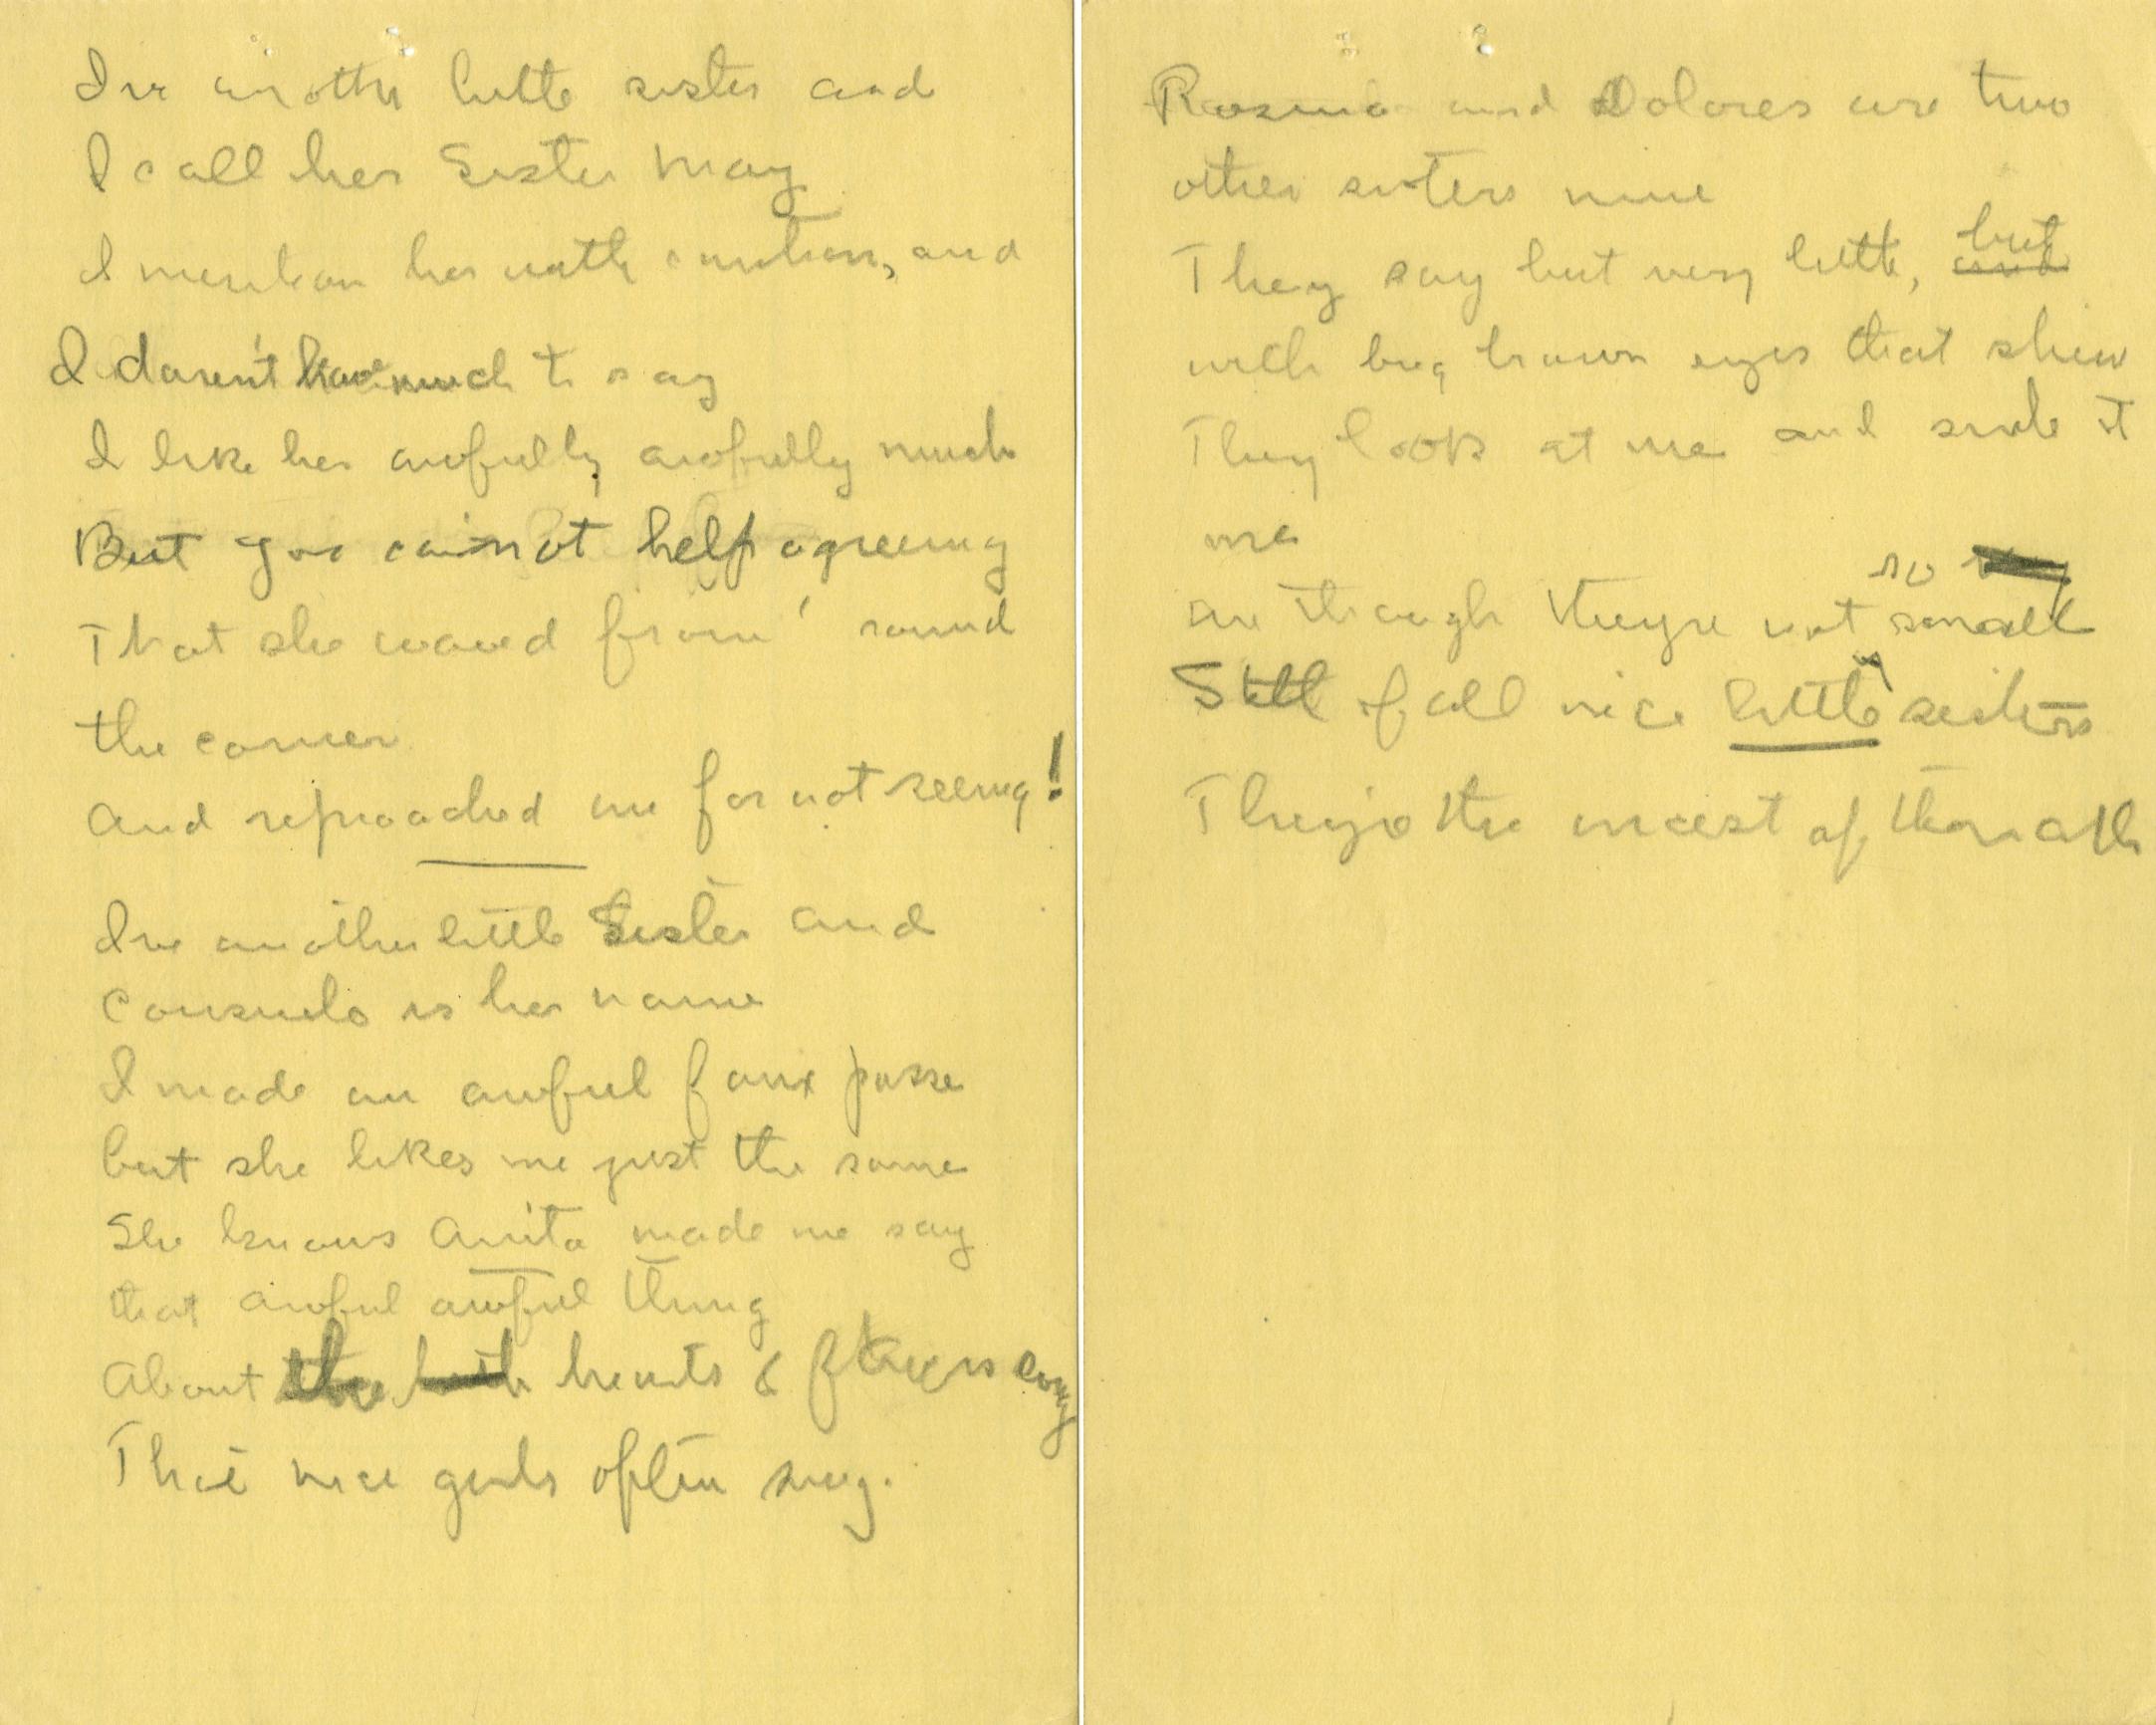 I've another little sister and
I call her Sister May
I mention her with caution, and
I daren't have much to say
I like her awfully, awfully much
But you cannot help agreeing
That she waved from 'round
the corner
And reproached me for not seeing!
I've another little Sister and
Consuelo is her name
I made an awful faux passe
but she likes me just the same
She knows Anita made me say
that awful awful thing
About the hearts &
That nice girls often sing.
and Dolores are two
other sisters mine
They say but very little, and but
with big brown eyes that shine
They look at me and smile at
me
an though they're not so small
Still of all nice little sisters
They're the nicest of them all